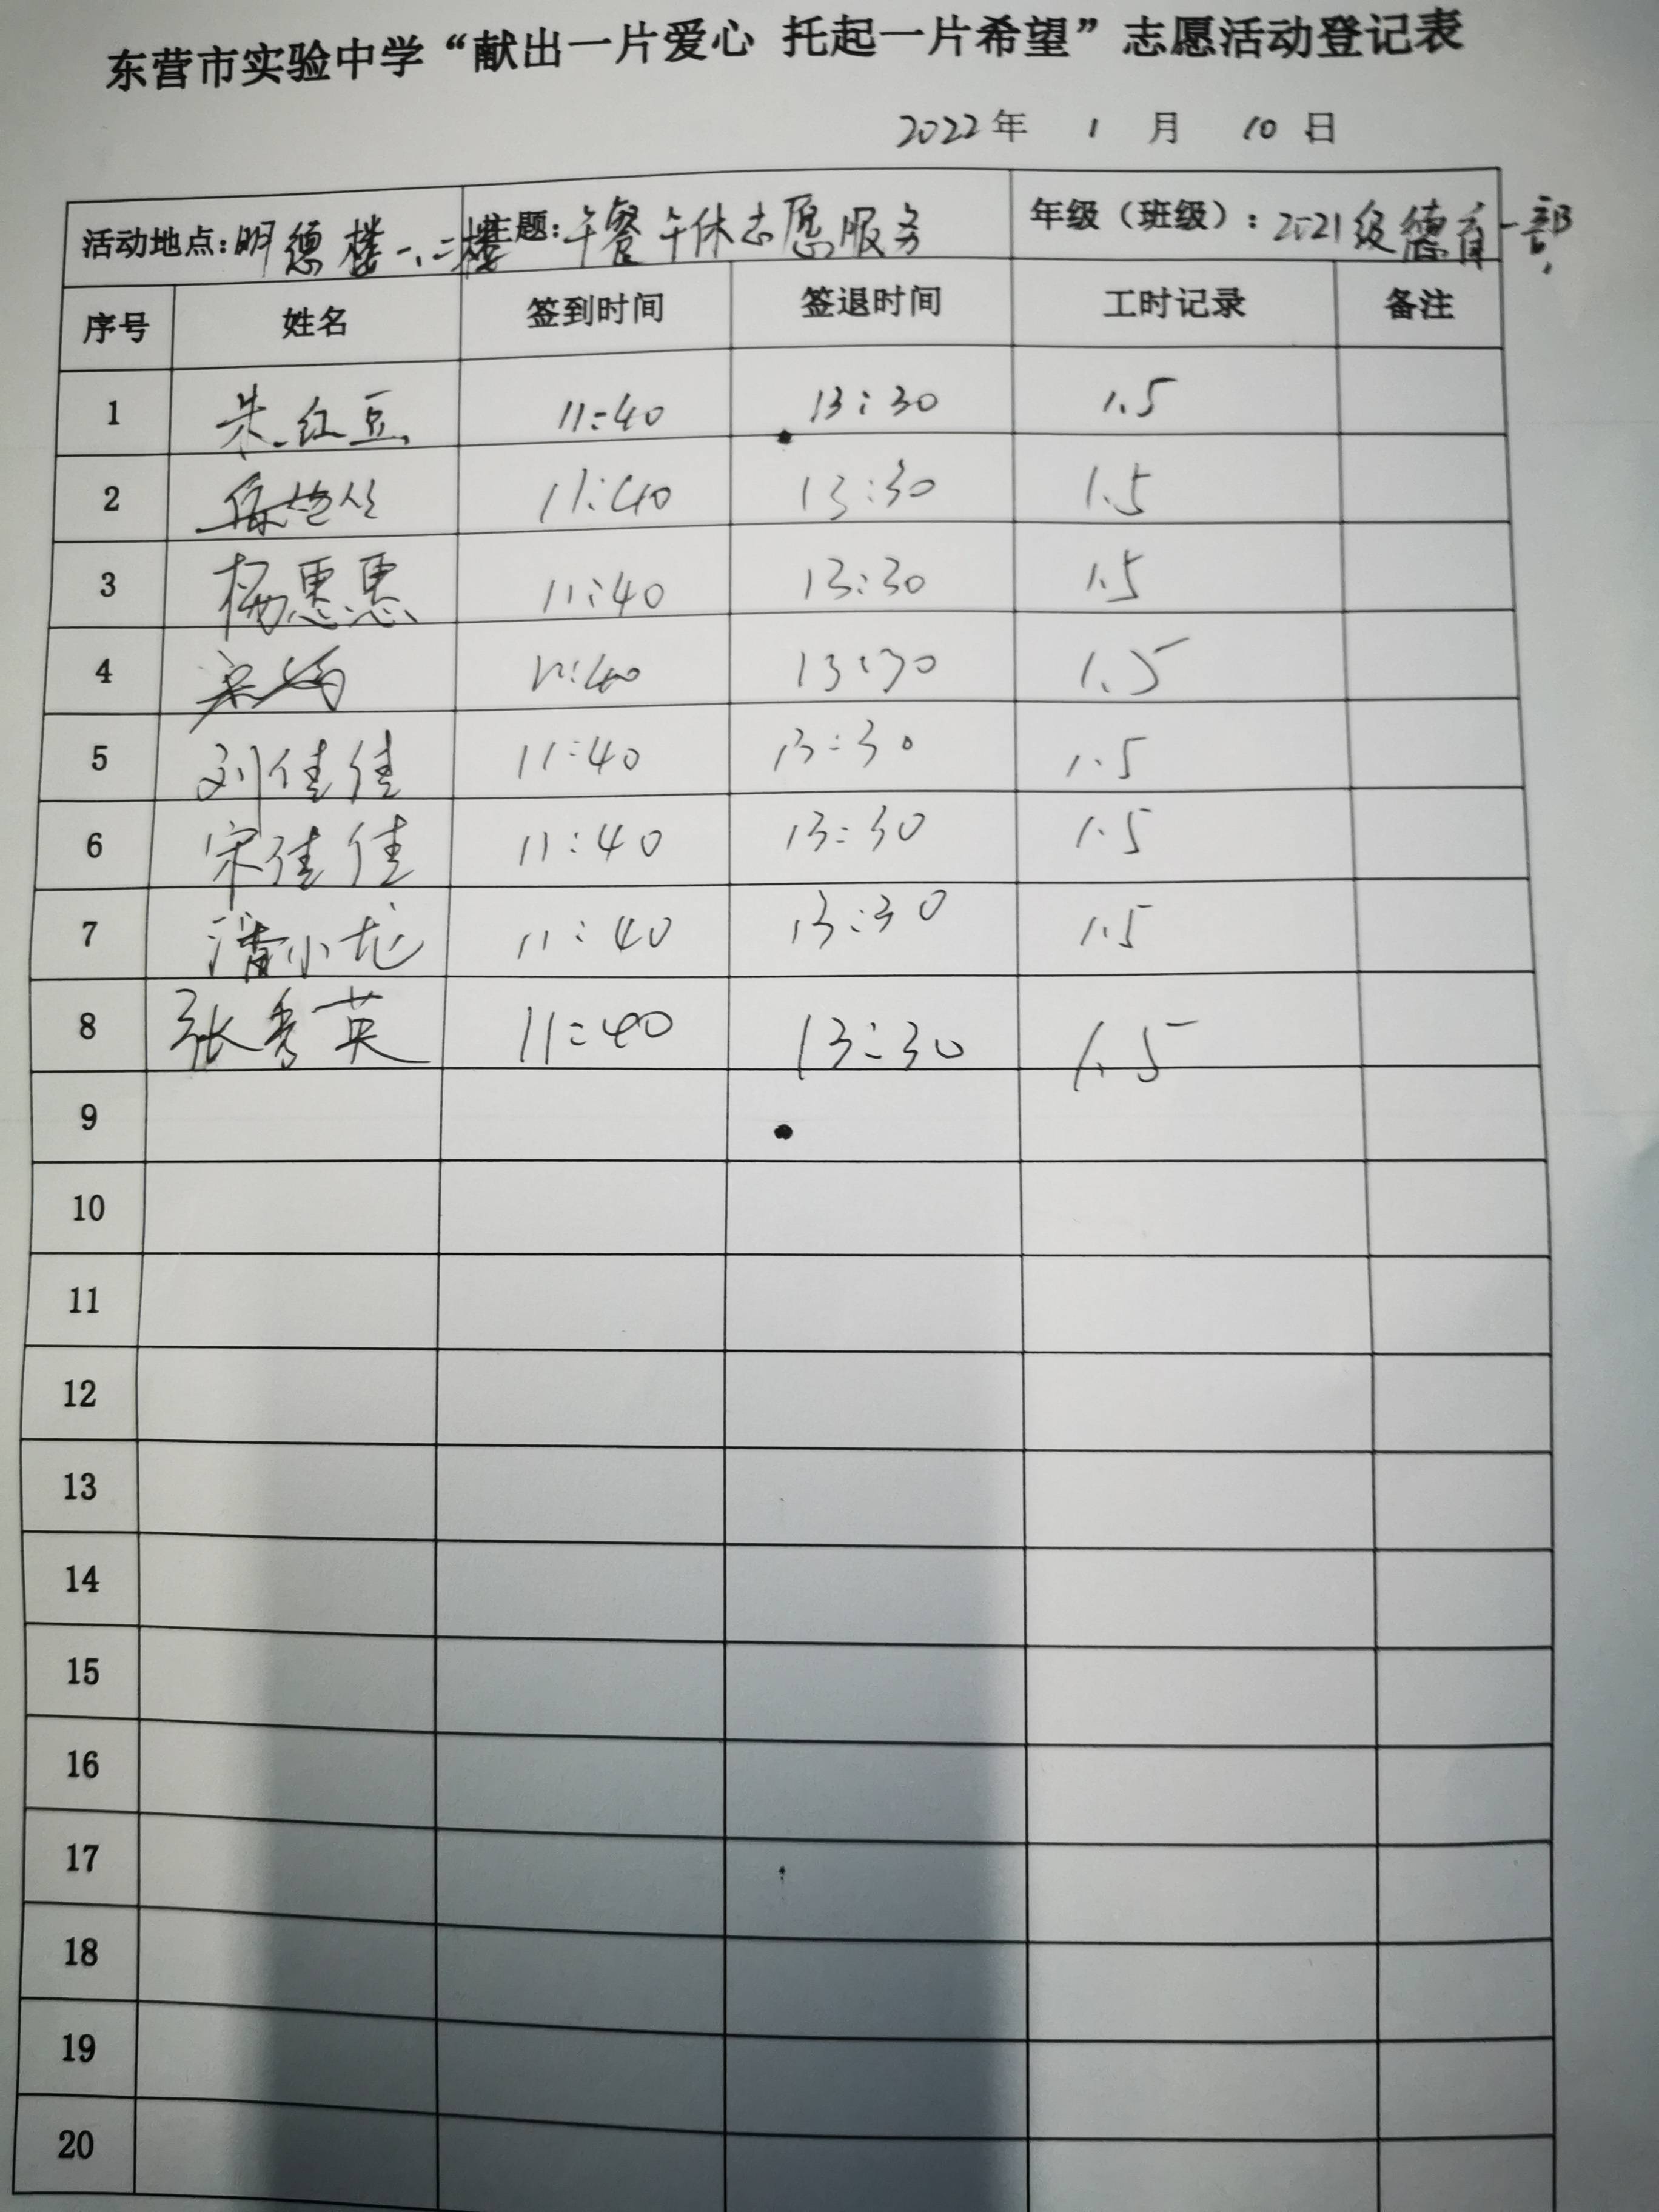 东营市实验中学“献出一片爱心 托起一片希望”志愿活动登记表
2022年 1 月 10 日
活动地点：明德楼一、二楼 主题：午餐午休志愿服务 年级（班级）：2021级德育一部
序号 姓名 签到时间 签退时间 工时记录 备注
1 朱红豆 11:40 13:30 1.5
2 11:40 13:30 1.5
3 杨惠惠 11:40 13:30 1.5
4 11:40 13:30 1.5
5 刘佳佳 11:40 13:30 1.5
6 宋佳佳 11:40 13:30 1.5
7 潘小龙 11:40 13:30 1.5
8 张秀英 11:40 13:30 1.5
9
10
11
12
13
14
15
16
17
18
19
20